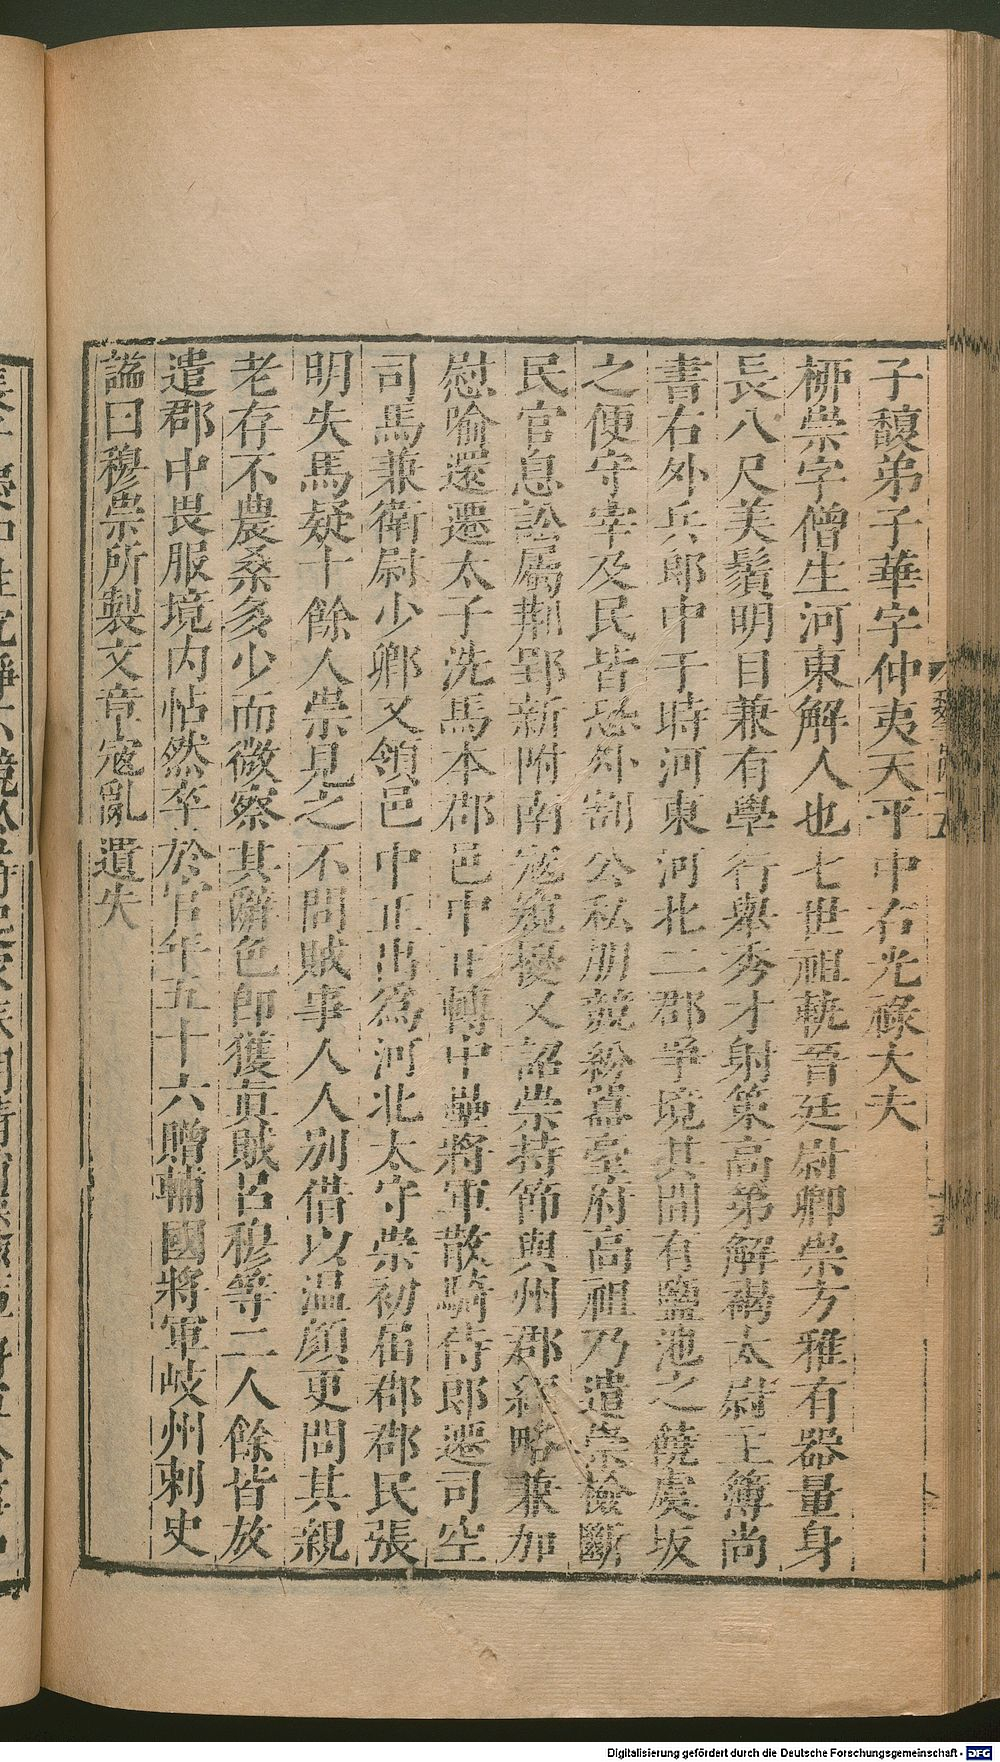 子馥弟子華字仲夷天平中右光祿大夫
柳崇字僧生河東解人也七世祖軌晉廷尉卿崇方雅有器量身
長八尺美鬚明目兼有學行舉秀才射策高第解褐太尉主簿尚
書右外兵郎中于時河東河北二郡爭境其間有鹽池之饒虞坂
之便守宰及民皆恐外割公私朋競紛囂臺府高祖乃遣崇檢斷
民官息訟屬荊郢新附南寇窺擾又詔崇持節與州郡經略兼加
慰喻還遷太子洗馬本郡邑中正轉中壘將軍散騎侍郎遷司空
司馬兼衛尉少卿又領邑中正出為河北太守崇初屆郡郡民張
明失馬疑十餘人崇見之不問賊事人人別借以温顏更問其親
老存不農桑多少而微察其辭色即獲真賊呂穆等二人餘皆放
遣郡中畏服境内怗然卒於官年五十六贈輔國將軍岐州刺史
謚曰穆崇所製文章寇亂遺失
Digitalisierung gefördert durch die Deutsche Forschungsgemeinschaft - DFG